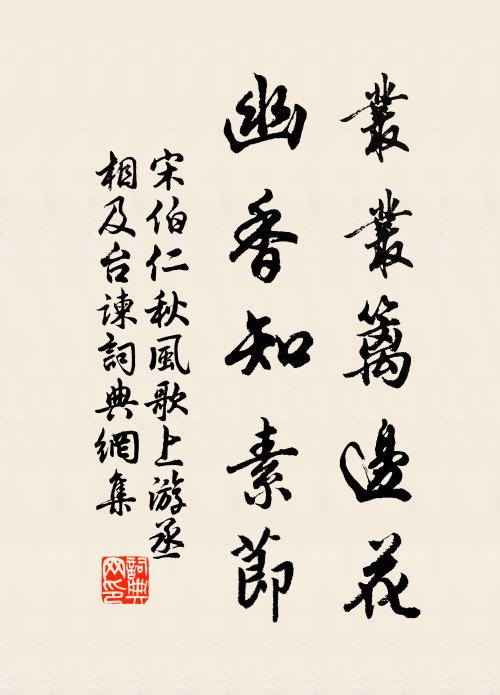 叢叢籬邊花
幽香知素節
宋伯仁秋風歌上游丞
相及台諫詞典網集
詞典
网印